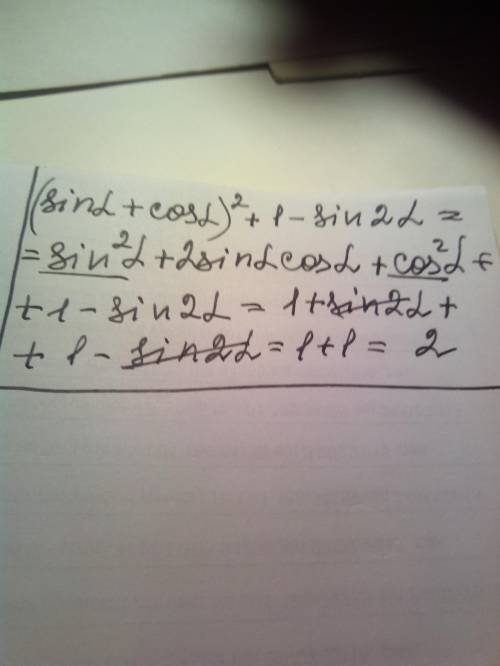 (sinα + cosα)² + 1 - sin2α =
= sin²α + 2sinαcosα + cos²α +
+ 1 - sin2α = 1 + sin2α +
+ 1 - sin2α = 1 + 1 = 2